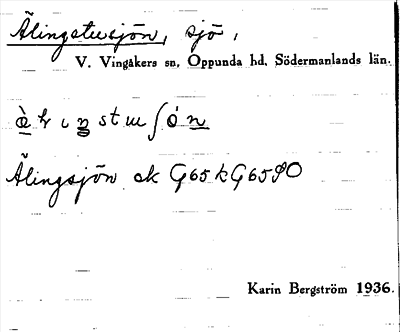 Älingstusjön, sjö,
V. Vingåkers sn, Oppunda hd, Södermanlands län.
Älingsjön ek G65 k G6590
Karin Bergström 1936.